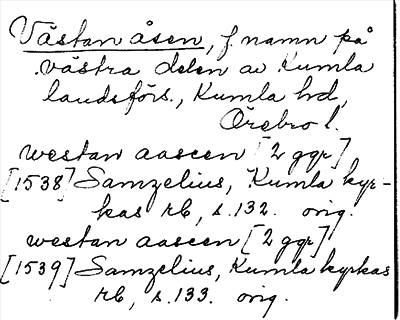 Västanåsen, f. namn på
västra delen av Kumla
landsförs., Kumla hd,
Örebro l.
westan aaseen [2 ggr]
[1538] Samzelius, Kumla kyr-
kas rb, s. 132. orig.
westan aaseen [2 ggr]
[1539] Samzelius, Kumla kyrkas
rb, s. 133. orig.